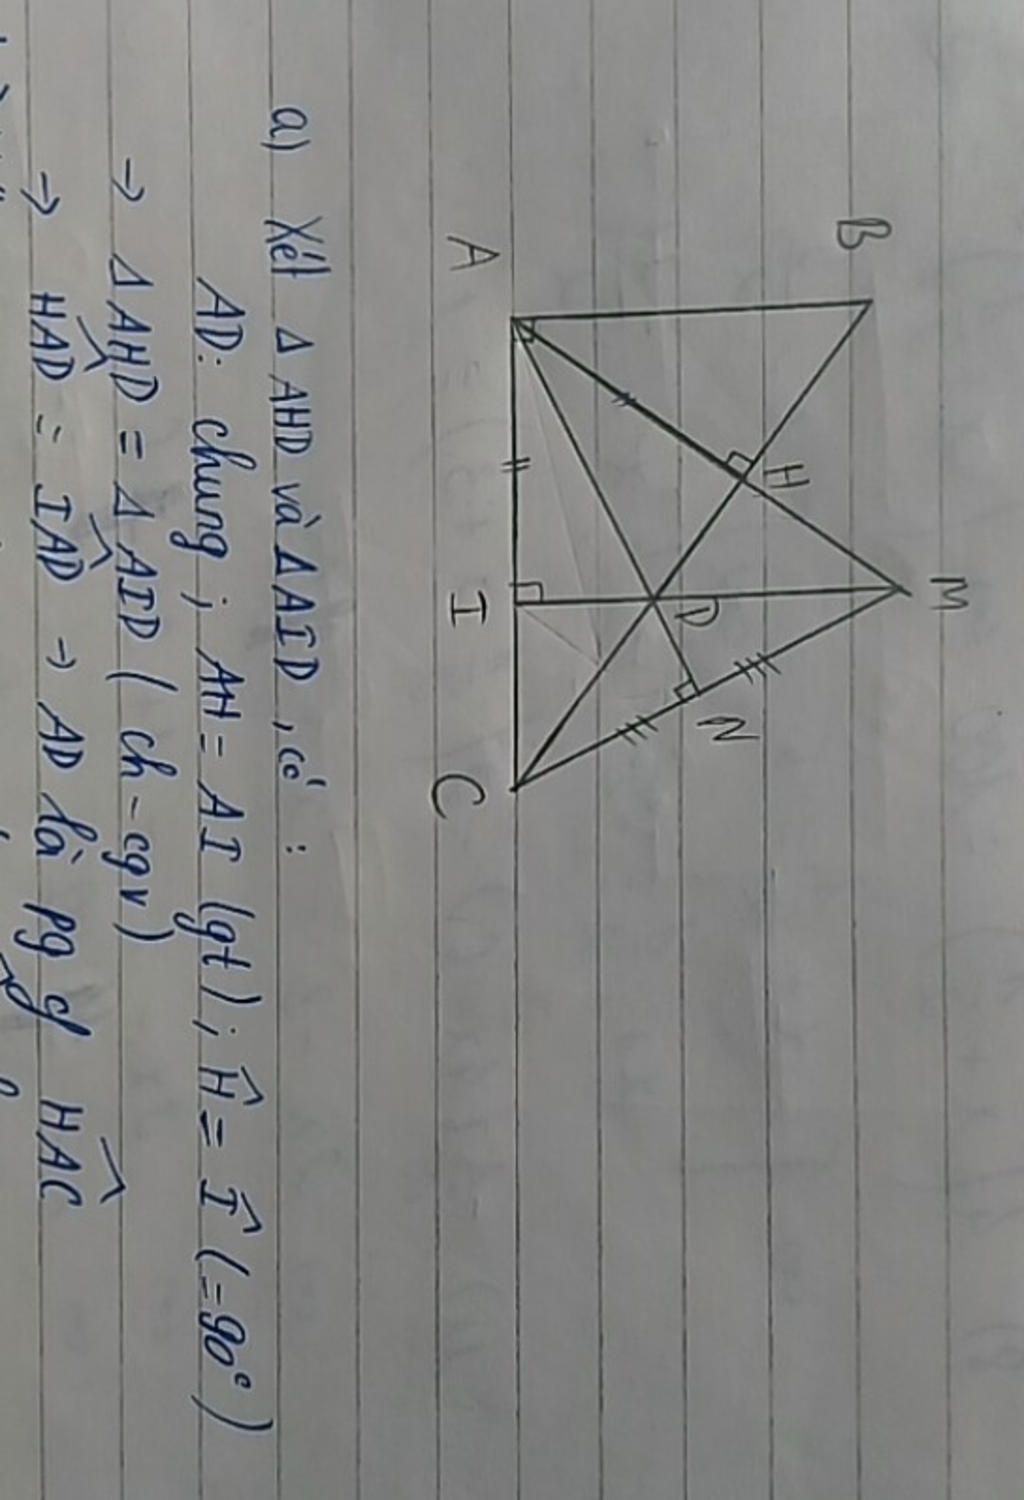 B
A
H
M
I
D
N
C
a) Xét Δ AHD và Δ AID, có :
AD: chung ; AH = AI (gt) ; Ĥ = Î (=90°)
→ Δ AHD = Δ AID ( ch - cgv)
→ HAD = IAD → AD là pg c/ HAC